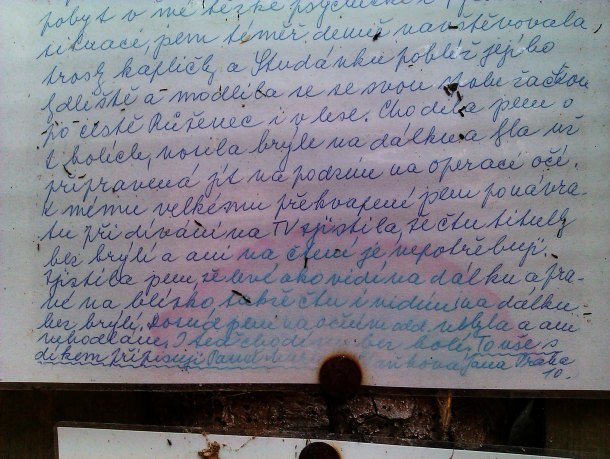 pobyt v mé těžké psychické
situaci, jsem téměř denně navštěvovala,
trosky kapličky a Studánku poblíž jejího
sídliště a modlila se se svou
po cestě Růženec i v lese. Chodila jsem o
t holích, nosila brýle na dálku a
připravená jít na podzim na operaci očí.
K mému velkému překvapení jsem po návra-
tu při dívání na TV zjistila, že čtu titulky
bez brýlí a ani na čtení je nepotřebuji.
Zjistila jsem, že levé oko vidí na dálku a pra-
vé na blízko, dobře čtu i vidím na dálku
bez brýlí. Dosud jsem na očním odd. nebyla a ani
I bez bolí. To vše s
díkem připisuji Panně Jana Praha
10.